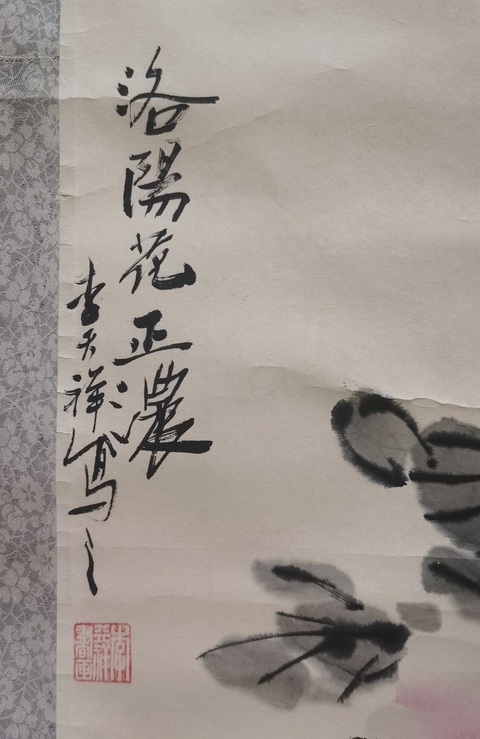 洛陽花正濃
李天祥寫之